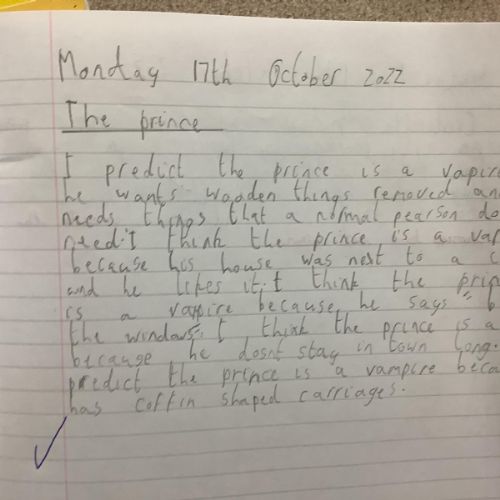 Monday 17th October 2022
The prince
I predict the prince is a vapire
he wants wooden things removed and
needs things that a normal pearson do
need. I think the prince is a
because his house was next to a
and he likes it. I think the
is a vapire because he says "
the windows". I think the prince is a
because he dosnt stay in town long.
predict the prince is a vampire beca
has coffin shaped carriages.